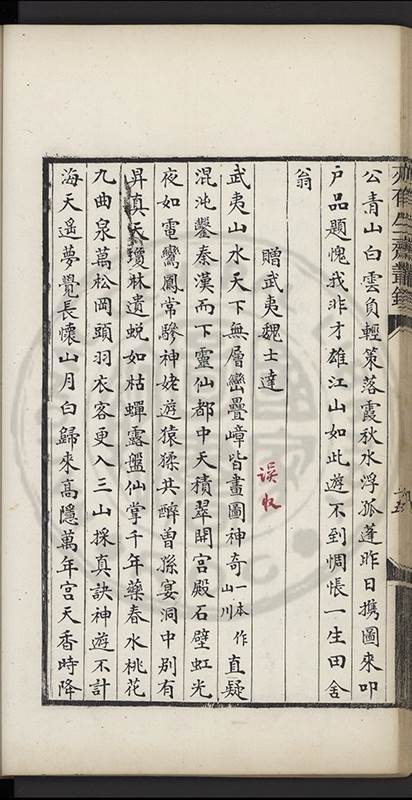 公青山白雲負輕策落霞秋水浮孤蓬昨日攜圖來叩
戶品題愧我非才雄江山如此遊不到惆悵一生田舍
翁
贈武夷魏士達
武夷山水天下無層巒疊嶂皆畫圖神奇一本作山川直疑
混沌鑿秦漢而下靈仙都中天積翠開宮殿石壁虹光
夜如電鸞鳳常驂神姥遊猿猱共醉曾孫宴洞中別有
昇真天瓊林遺蛻如枯蟬露盤仙掌千年藥春水桃花
九曲泉萬松岡頭羽衣客更入三山採真訣神遊不計
海天遙夢覺長懷山月白歸來高隱萬年宮天香時降
誤收